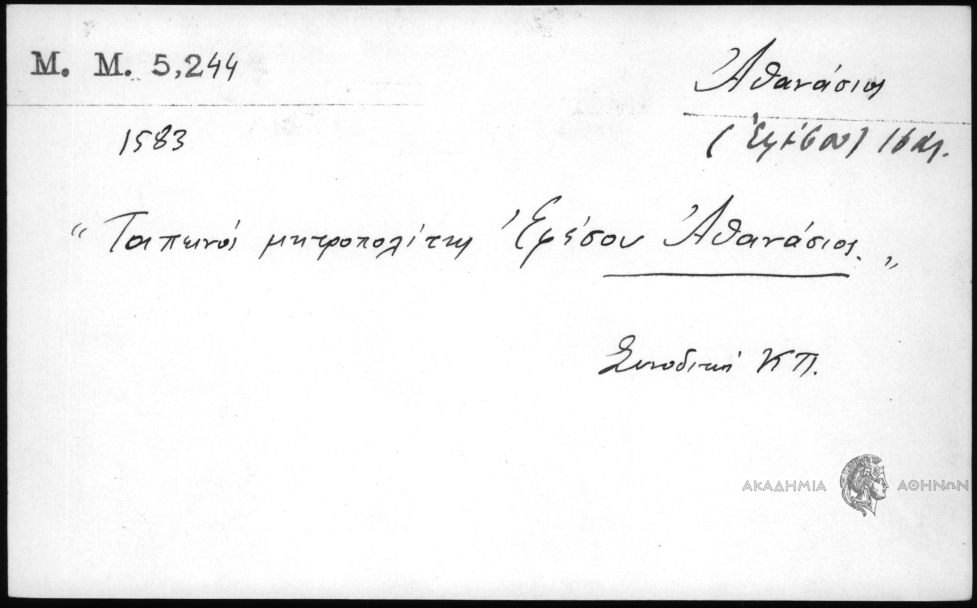 Μ. Μ. 5,244
Ἀθανάσιος
1583
(Ἐφέσου) 16 αι.
“ Ταπεινὸς μητροπολίτης Ἐφέσου Ἀθανάσιος. „
Συνοδικὴ ΚΠ.
ΑΚΑΔΗΜΙΑ ΑΘΗΝΩΝ